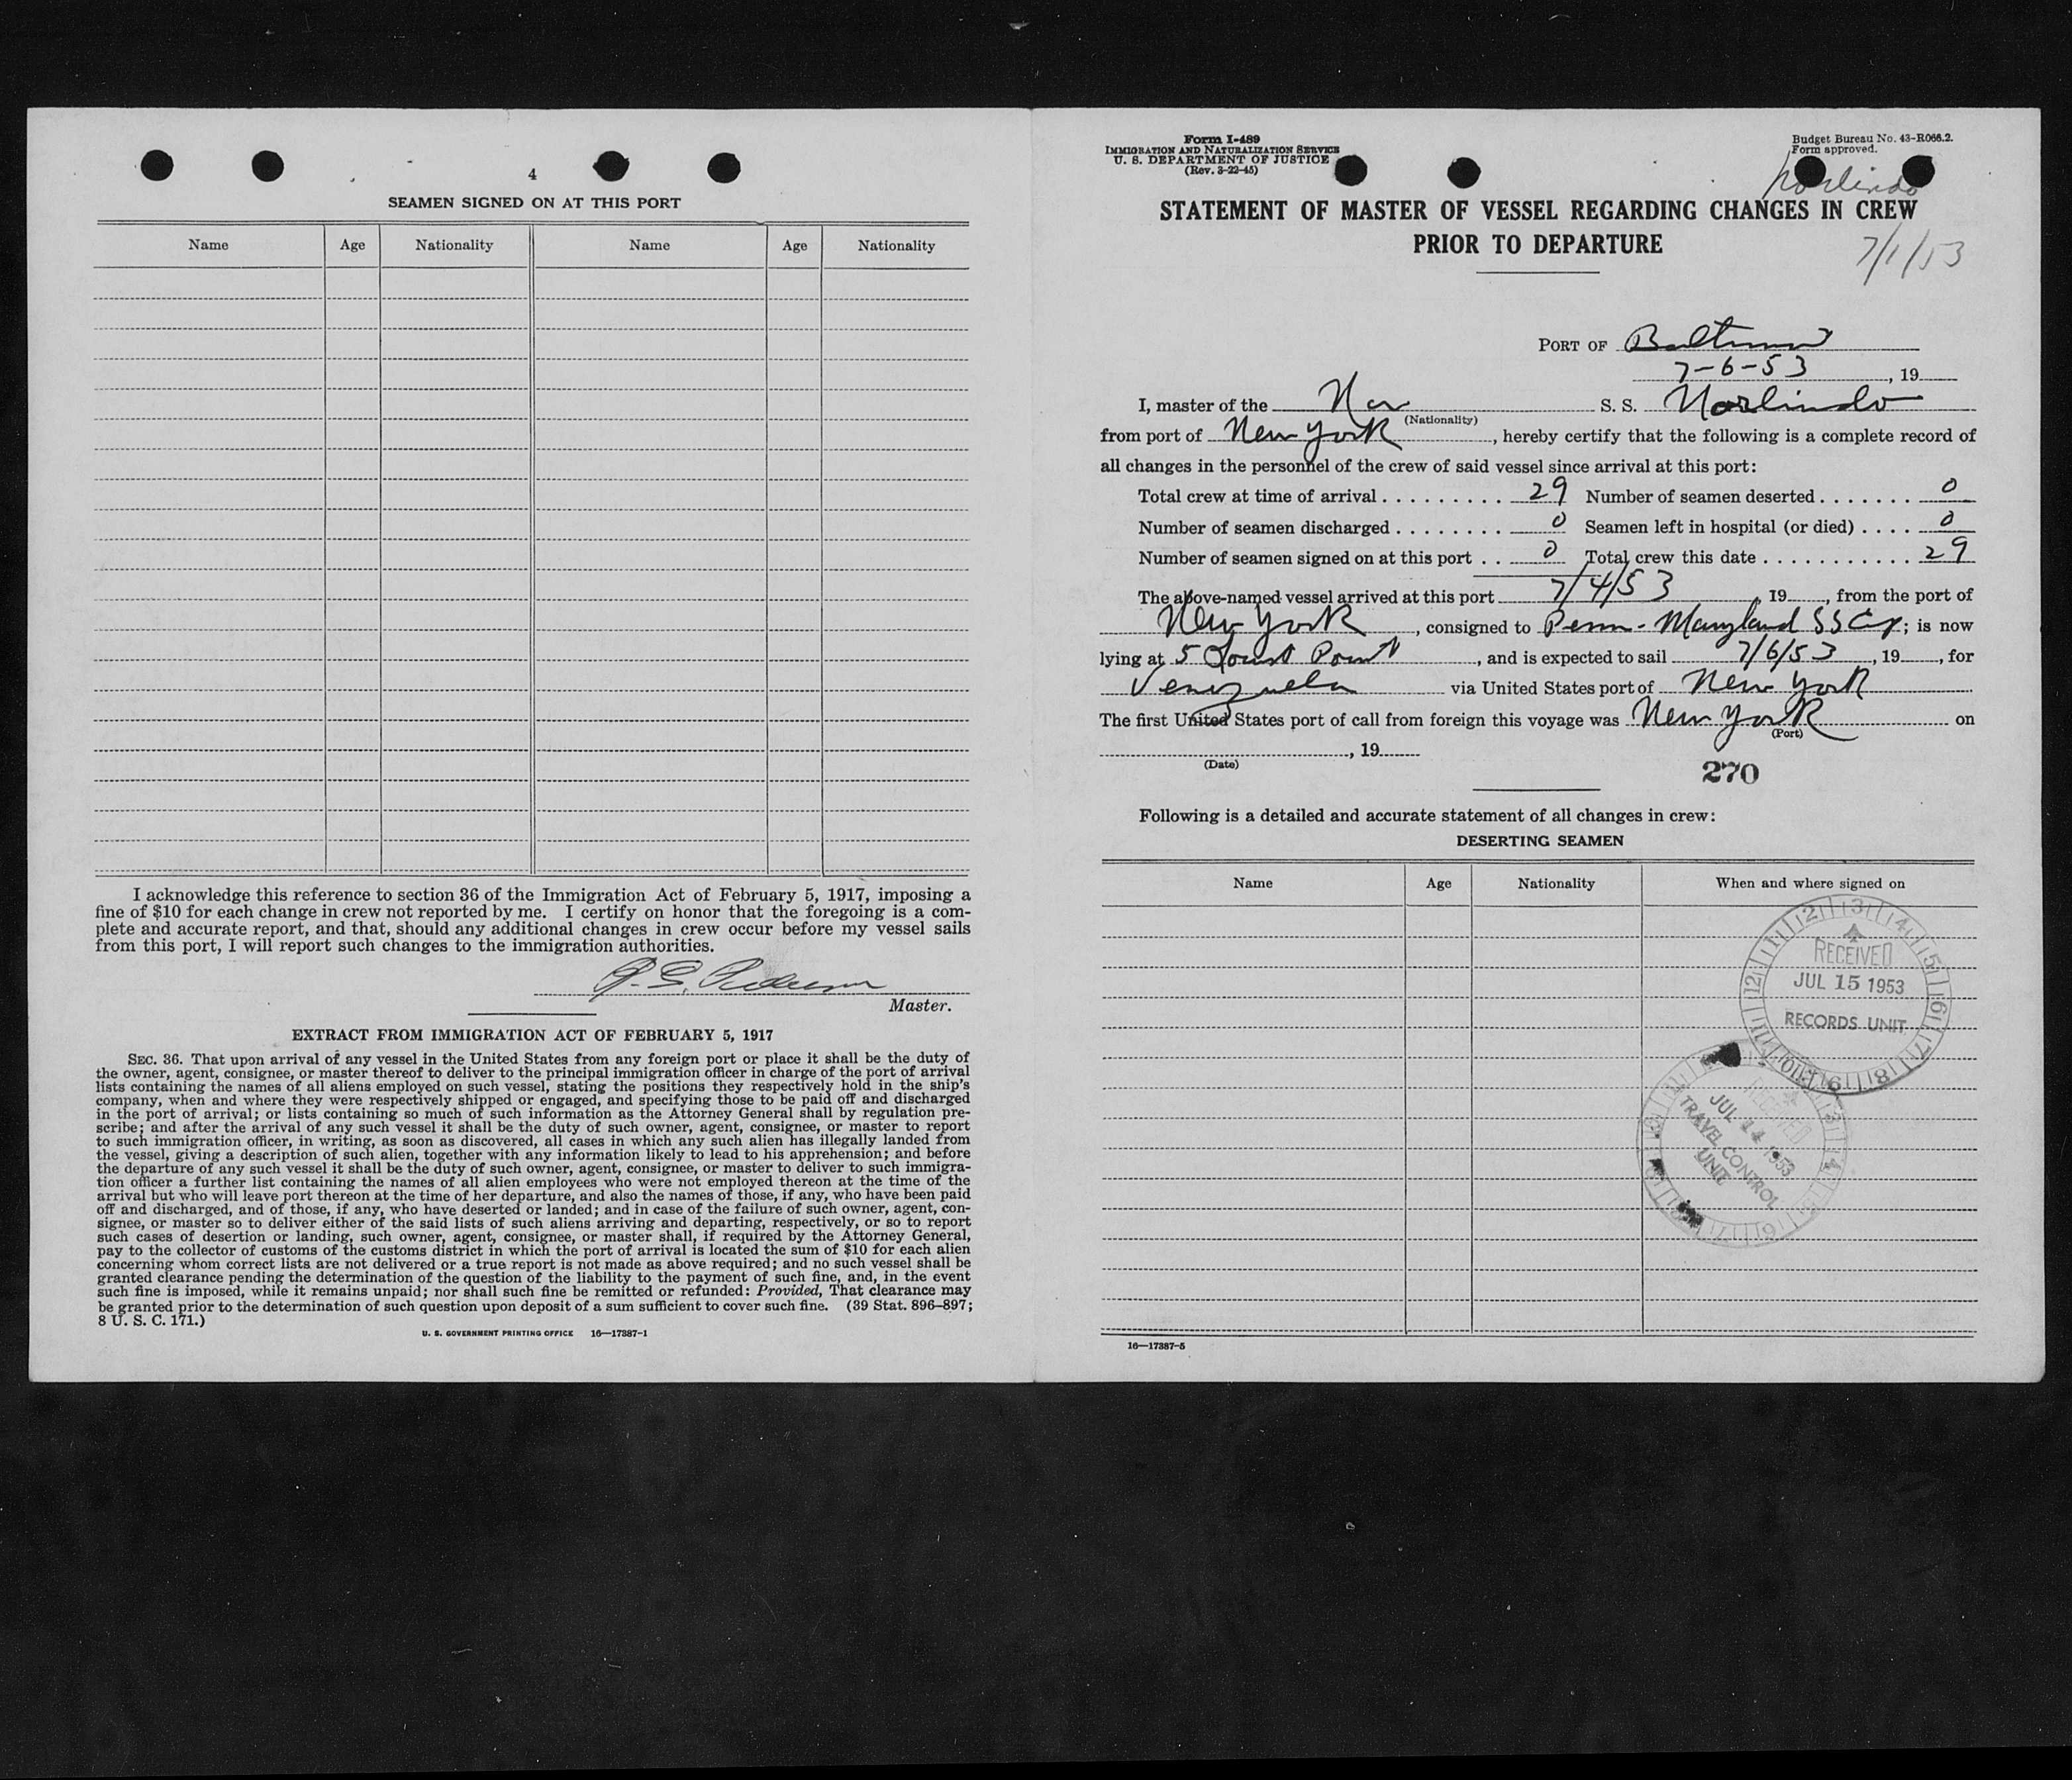 4
SEAMEN SIGNED ON AT THIS PORT
Name Age Nationality Name Age Nationality
I acknowledge this reference to section 36 of the Immigration Act of February 5, 1917, imposing a
fine of $10 for each change in crew not reported by me. I certify on honor that the foregoing is a com-
plete and accurate report, and that, should any additional changes in crew occur before my vessel sails
from this port, I will report such changes to the immigration authorities.
Master.
EXTRACT FROM IMMIGRATION ACT OF FEBRUARY 5, 1917
SEC. 36. That upon arrival of any vessel in the United States from any foreign port or place it shall be the duty of
the owner, agent, consignee, or master thereof to deliver to the principal immigration officer in charge of the port of arrival
lists containing the names of all aliens employed on such vessel, stating the positions they respectively hold in the ship's
company, when and where they were respectively shipped or engaged, and specifying those to be paid off and discharged
in the port of arrival; or lists containing so much of such information as the Attorney General shall by regulation pre-
scribe; and after the arrival of any such vessel it shall be the duty of such owner, agent, consignee, or master to report
to such immigration officer, in writing, as soon as discovered, all cases in which any such alien has illegally landed from
the vessel, giving a description of such alien, together with any information likely to lead to his apprehension; and before
the departure of any such vessel it shall be the duty of such owner, agent, consignee, or master to deliver to such immigra-
tion officer a further list containing the names of all alien employees who were not employed thereon at the time of the
arrival but who will leave port thereon at the time of her departure, and also the names of those, if any, who have been paid
off and discharged, and of those, if any, who have deserted or landed; and in case of the failure of such owner, agent, con-
signee, or master so to deliver either of the said lists of such aliens arriving and departing, respectively, or so to report
such cases of desertion or landing, such owner, agent, consignee, or master shall, if required by the Attorney General,
pay to the collector of customs of the customs district in which the port of arrival is located the sum of $10 for each alien
concerning whom correct lists are not delivered or a true report is not made as above required; and no such vessel shall be
granted clearance pending the determination of the question of the liability to the payment of such fine, and, in the event
such fine is imposed, while it remains unpaid; nor shall such fine be remitted or refunded: Provided, That clearance may
be granted prior to the determination of such question upon deposit of a sum sufficient to cover such fine. (39 Stat. 896–897;
8 U. S. C. 171.)
U. S. GOVERNMENT PRINTING OFFICE 16—17387-1
Form I-489
IMMIGRATION AND NATURALIZATION SERVICE
U. S. DEPARTMENT OF JUSTICE
(Rev. 3-22-45)
Budget Bureau No. 43-R066.2.
Form approved.
Norlindo
STATEMENT OF MASTER OF VESSEL REGARDING CHANGES IN CREW
PRIOR TO DEPARTURE
7/1/53
PORT OF Baltimore
7-6-53, 19
I, master of the Nor S. S. Norlindo
(Nationality)
from port of New York, hereby certify that the following is a complete record of
all changes in the personnel of the crew of said vessel since arrival at this port:
Total crew at time of arrival . . . . . . . . . 29 Number of seamen deserted . . . . . . . 0
Number of seamen discharged . . . . . . . . 0 Seamen left in hospital (or died) . . . . 0
Number of seamen signed on at this port . . 0 Total crew this date . . . . . . . . . . . 29
The above-named vessel arrived at this port 7/4/53, 19, from the port of
New York, consigned to Penn-Maryland SS Cy; is now
lying at 5 Locust Point, and is expected to sail 7/6/53, 19, for
Venezuela via United States port of New York
The first United States port of call from foreign this voyage was New York on
(Port)
, 19
(Date)
270
Following is a detailed and accurate statement of all changes in crew:
DESERTING SEAMEN
Name Age Nationality When and where signed on
RECEIVED
JUL 15 1953
RECORDS UNIT
RECEIVED
JUL 14 1953
TRAVEL CONTROL
UNIT
16—17387-5